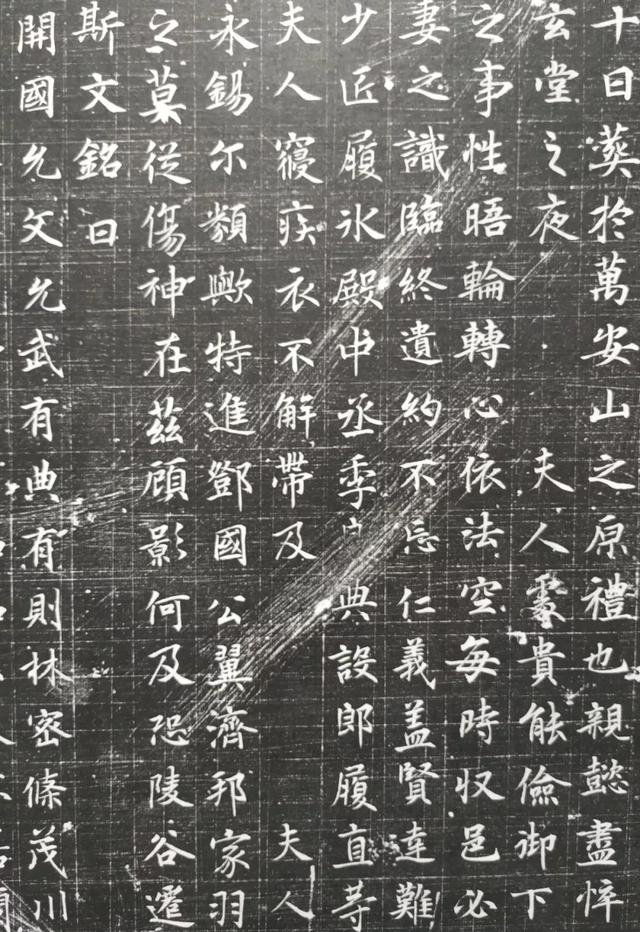 十日葬於萬安山之原禮也親懿盡悴
玄堂之夜 夫人處貴能儉御下
之事性晤輪轉心依法空每時収邑必
妻之識臨終遺約不忘仁義盖賢達難
少匠履氷殿中丞季 典設郎履直等
夫人寢疾衣不解帶及 夫人
永錫尔類歟特進鄧國公翼濟邦家羽
之慕從傷神在茲顧影何及恐陵谷遷
斯文銘曰
開國允文允武有典有則林密條茂川